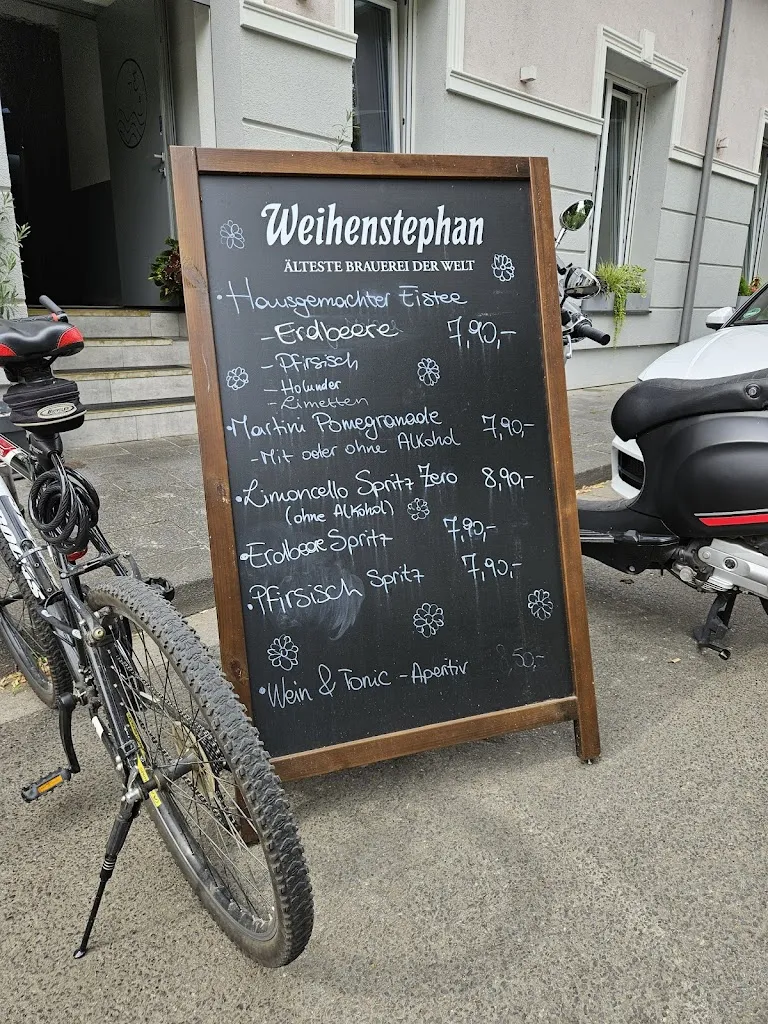 Weihenstephan
ÄLTESTE BRAUEREI DER WELT
• Hausgemachter Eistee
- Erdbeere 7,90,-
- Pfirsisch
- Holunder
- Limetten
• Martini Pomegranade 7,90,-
- Mit oder ohne Alkohol
• Limoncello Spritz Zero 8,90,-
(ohne Alkohol)
• Erdbeer Spritz 7,90,-
• Pfirsisch Spritz 7,90,-
• Wein & Tonic - Aperitiv 8,50,-